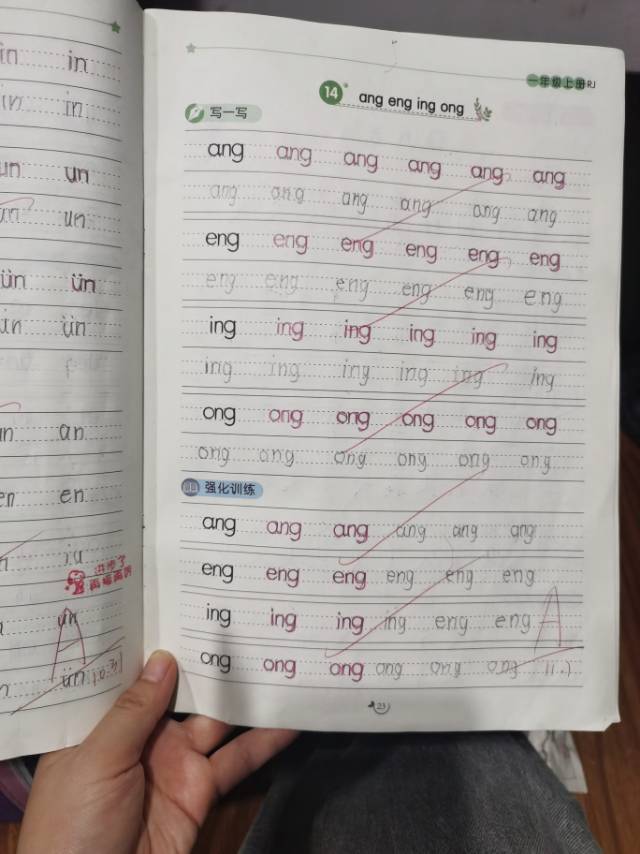 in in
in in
un un
un un
ün ün
ün ün
an
en
ün
进步了
再接再厉
A
一年级上册 RJ
14 ang eng ing ong
写一写
ang ang ang ang ang ang
ang ang ang ang ang ang
eng eng eng eng eng eng
eng eng eng eng eng eng
ing ing ing ing ing ing
ing ing ing ing ing ing
ong ong ong ong ong ong
ong ong ong ong ong ong
强化训练
ang ang ang ang ang ang
eng eng eng eng eng eng
ing ing ing ing eng eng
ong ong ong
A
11.1
23